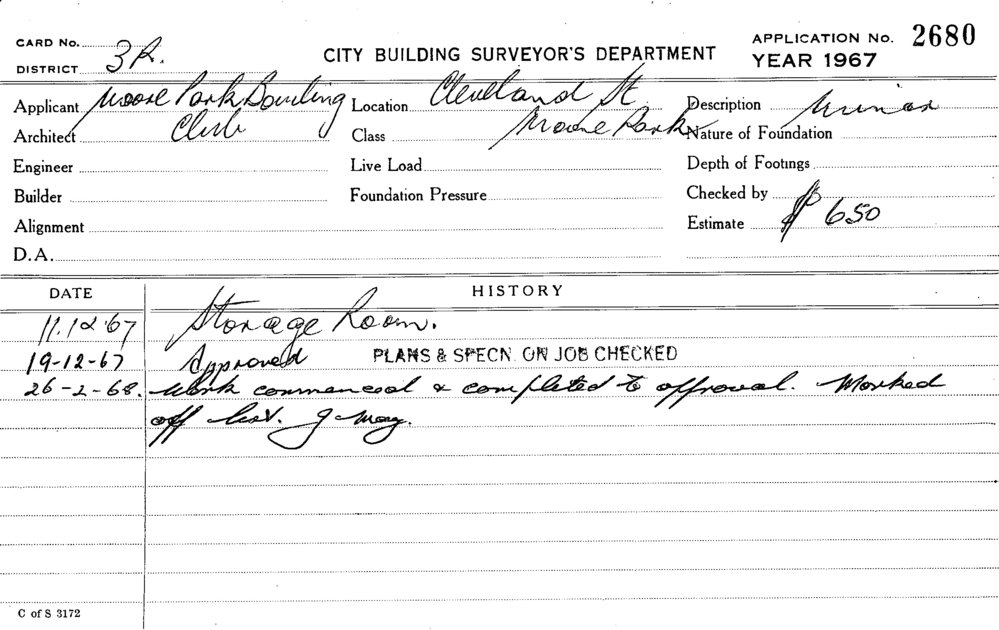 CARD No.
DISTRICT 3R.
CITY BUILDING SURVEYOR'S DEPARTMENT
APPLICATION No. 2680
YEAR 1967
Applicant Moore Park Bowling
Location Cleveland St
Description Minor
Architect Club
Class Moore Park
Nature of Foundation
Engineer
Live Load
Depth of Footings
Builder
Foundation Pressure
Checked by
Alignment
Estimate $ 650
D.A.
DATE
HISTORY
11.12.67 Storage Room.
19-12-67 Approved PLANS & SPECN. ON JOB CHECKED
26-2-68. Work commenced & completed to approval. Marked
off list. J May.
C of S 3172